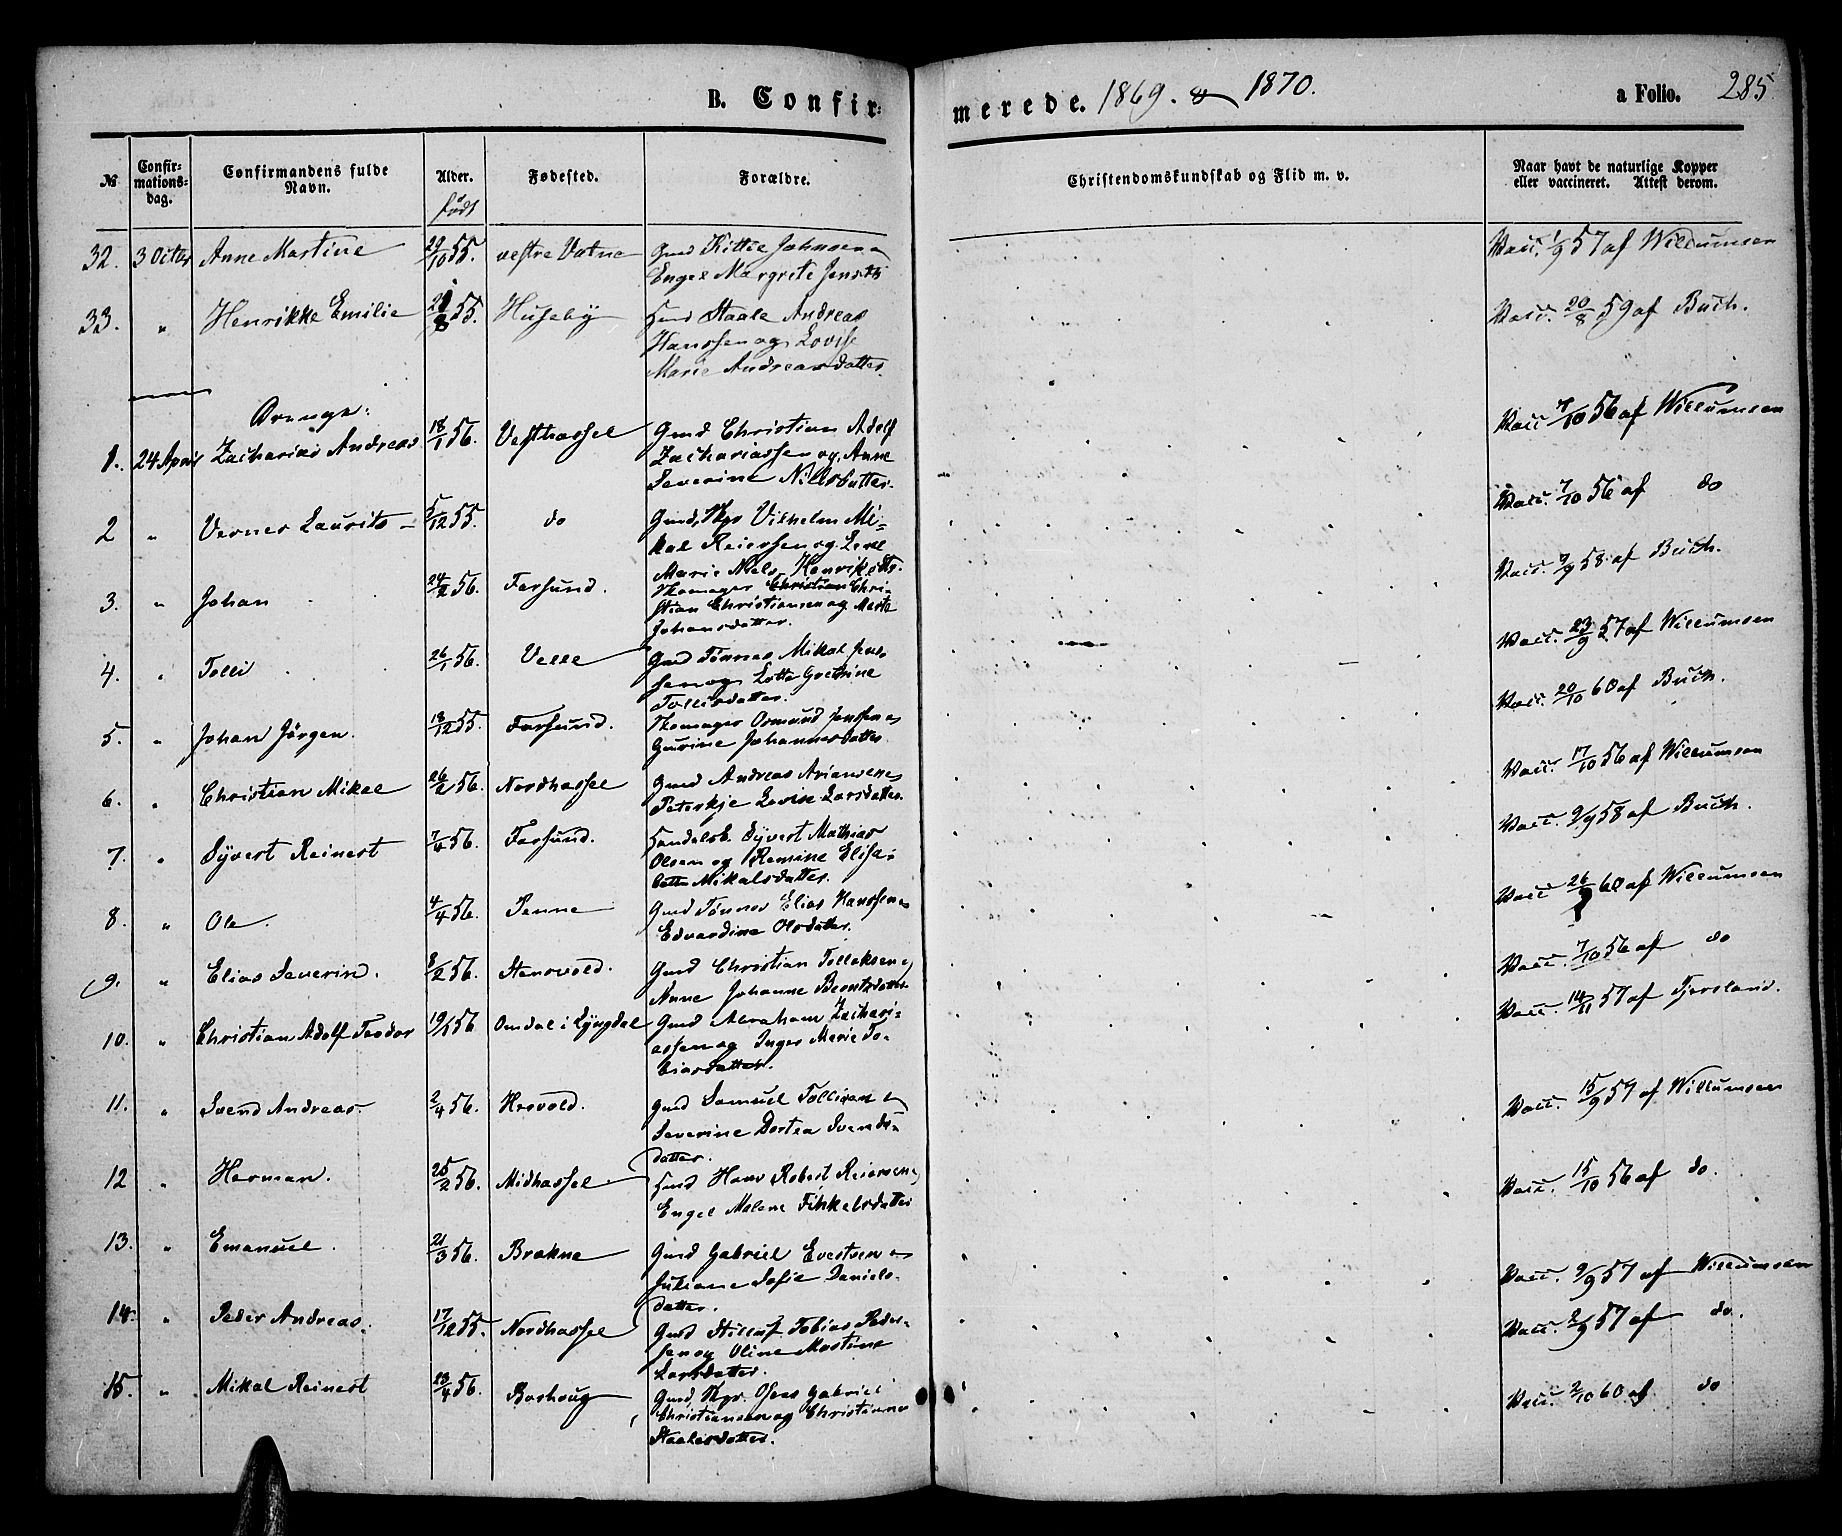 B. Confir= merede. 1869. & 1870. a Folio. 285
№ Confir=mations=dag. Confirmandens fulde Navn. Alder. født Fødested. Forældre. Christendomskundskab og Flid m. v. Naar havt de naturlige Kopper eller vaccineret. Attest derom.
32. 3 Octbr Anne Martine 29/10 55. vestre Vatne Gmd Kittel Johnsen og Vacc. 1/9 57 af Willumsen
Engel Margrete Jensdtr
33. " Henrikke Emilie 8 55. Huseby Hmd Staale Andreas Vacc. 20/8 59 af Buch.
Hanssen og Lovise
Marie Andreasdatter.
Drenge:
1. 24 April Zacharias Andreas 18/1 56. Vesthassel Gmd Christian Adolf Vacc 7/10 56 af Willumsen
Zachariassen og Anne
Severine Nilsdatter.
2 " Verner Laurits 5/12 55. do Gmd, Thgr Vilhelm Mi= Vacc. 7/10 56 af do
kal Reiersen og Lene
Marie Niels Henriksdtr.
3. " Johan 24/2 56. Farsund. Thomager Christian Chri= Vacc. 9/9 58 af Buch.
stian Christiansen og Marte
Johansdatter.
4. " Tolli 26/1 56. Velle Gmd Tønnes Mikal Jens= Vacc. 23/9 57 af Willumsen
sen og Lotte Gretrine
Tollisdatter.
5. " Johan Jørgen. 18/12 55. Farsund. Thomager Osmund Jenssen og Vacc. 20/10 60 af Buch.
Gurine Johannesdatter
6. " Christian Mikal 26/2 56. Nordhassel Gmd Andreas Ariansen og Vacc. 17/10 56 af Willumsen
Peterskje Lovise Larsdatter.
7. " Syvert Reinert 7/4 56. Farsund. Handelsb. Syvert Mathias Vacc. 9/9 58 af Buch.
Olsen og Remine Elisa=
beth Mikalsdatter.
8. " Ole. 4/4 56. Penne Gmd Tønnes Elias Hanssen og Vacc 26/ 60 af Willumsen
Edvardine Olsdatter.
9. " Elias Severin. 8/2 56. Stensvold. Gmd Christian Tollaksen og Vacc. 7/10 56 af do
Anne Johanne Berntsdatter
10. " Christian Adolf Teodor 19/1 56 Omdal i Lyngdal Gmd Abraham Zachari= Vacc. 14/11 57 af Tjørsland.
assen og Inger Marie To=
biasdatter.
11. " Svend Andreas. 2/4 56. Hrøvold. Gmd Samuel Tollisen og Vacc. 15/9 57 af Willumsen
Severine Dortea Svends=
datter.
12 " Herman. 25/2 56. Midhassel. Hmd Hans Robert Reiersen og Vacc. 15/10 56 af do.
Engel Malene Finkelsdatter
13. " Emanuel. 21/3 56. Brekne Gmd Gabriel Evertsen og Vacc. 9/9 57 af Willumsen
Juliane Sofie Daniels=
datter.
14. " Peder Andreas. 17/12 55. Nordhassel Gmd Stilluf Tobias Peder= Vacc. 2/9 57 af do.
sen og Oline Martine
Larsdatter.
15. " Mikal Reinert 23/4 56. Borhoug Gmd, Thgr. Oseas Gabriel Vacc 2/10 60 af do
Christiansen og Christianne
Staalesdatter.